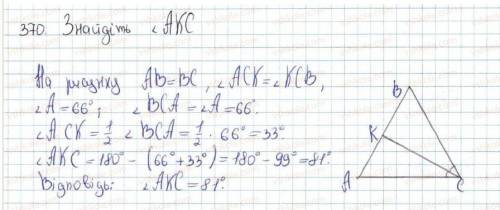 370. Знайдіть ∠AKC
На рисунку AB=BC, ∠ACK=∠KCB,
∠A=66°; ∠BCA=∠A=66°.
∠ACK=1/2 ∠BCA=1/2·66°=33°
∠AKC=180°-(66°+33°)=180°-99°=81°.
Відповідь: ∠AKC=81°.
B
K
A
C